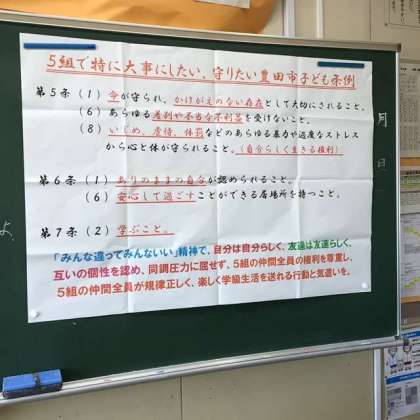 5組で特に大事にしたい、守りたい豊田市子ども条例
第5条(1)命が守られ、かけがえのない存在として大切にされること。
(6)あらゆる差別や不当な不利益を受けないこと。
(8)いじめ、虐待、体罰などのあらゆる暴力や過度なストレス
から心と体が守られること。(自分らしく生きる権利)
第6条(1)ありのままの自分が認められること。
(6)安心して過ごすことができる居場所を持つこと。
第7条(2)学ぶこと。
「みんな違ってみんないい」精神で、自分は自分らしく、友達は友達らしく、
互いの個性を認め、同調圧力に屈せず、5組の仲間全員の権利を尊重し、
5組の仲間全員が規律正しく、楽しく学級生活を送れる行動と気遣いを。
月
日
よ